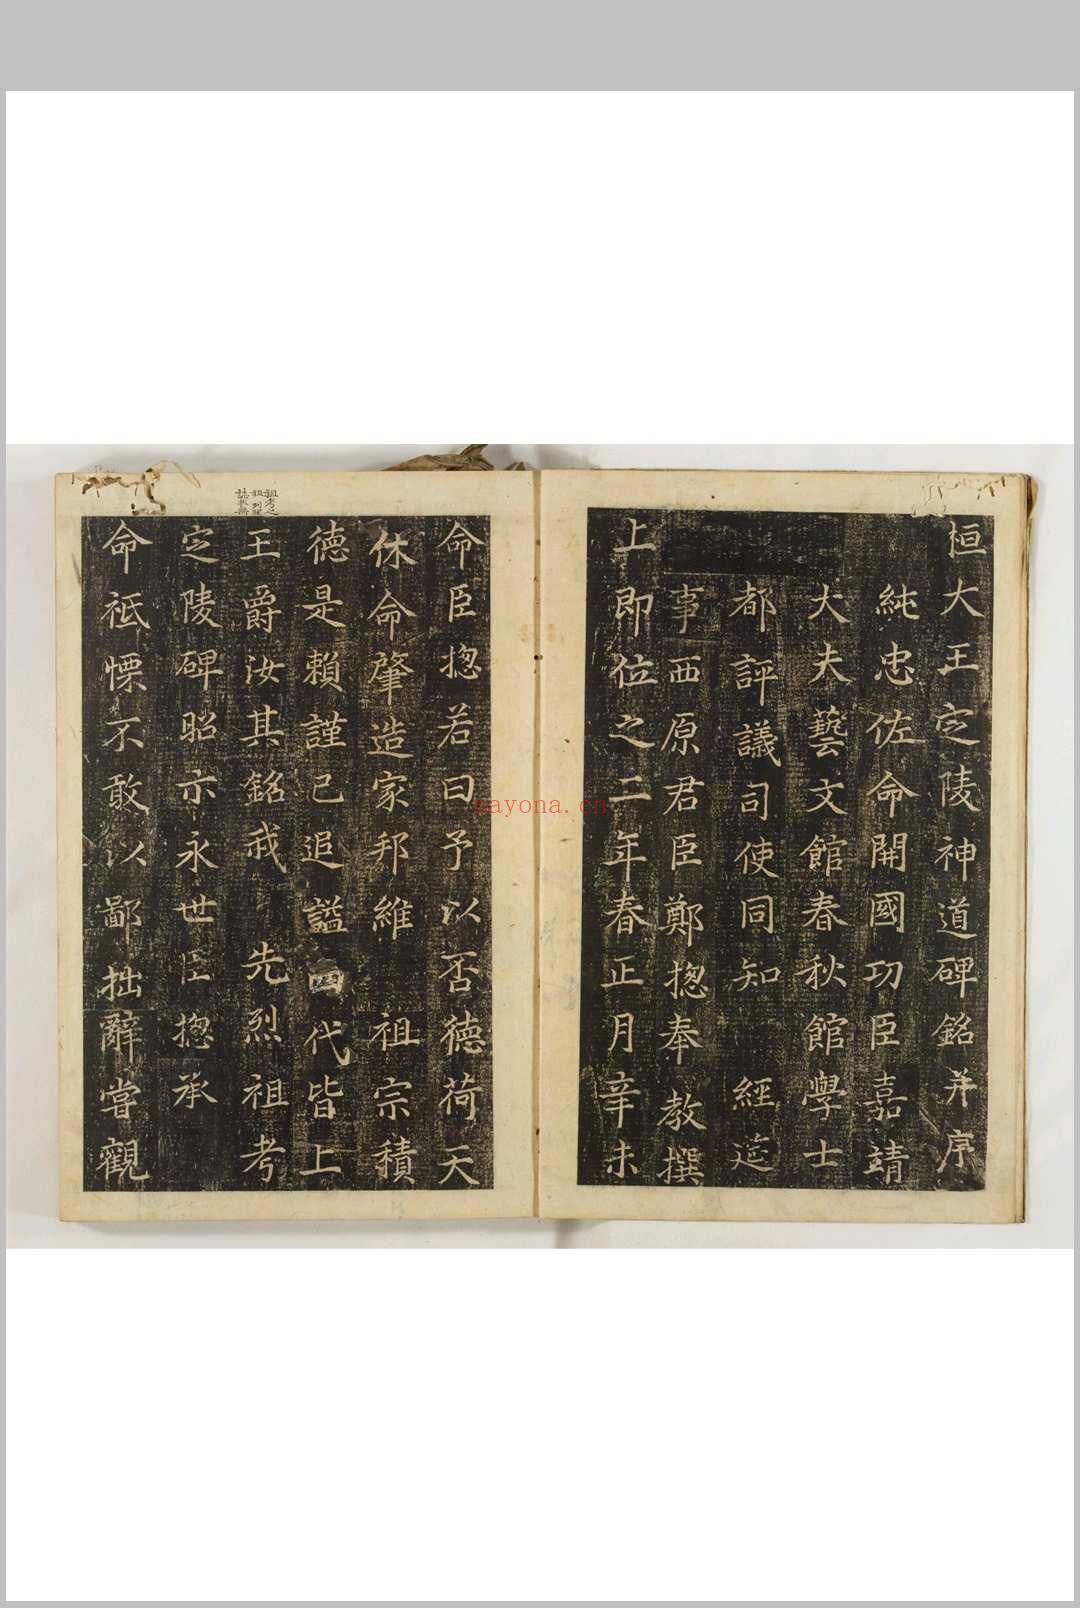 桓大王定陵神道碑銘并序
純忠佐命開國功臣嘉靖
大夫藝文館春秋館學士
都評議司使同知 經筵
事西原君臣鄭摠奉教撰
上即位之二年春正月辛未
命臣摠若曰予以否德荷天
休命肇造家邦維 祖宗積
德是賴謹已追謚四代皆上
王爵汝其銘我 先烈祖考
定陵碑昭示永世臣摠承
命祗慄不敢以鄙拙辭嘗觀
nayona.cn